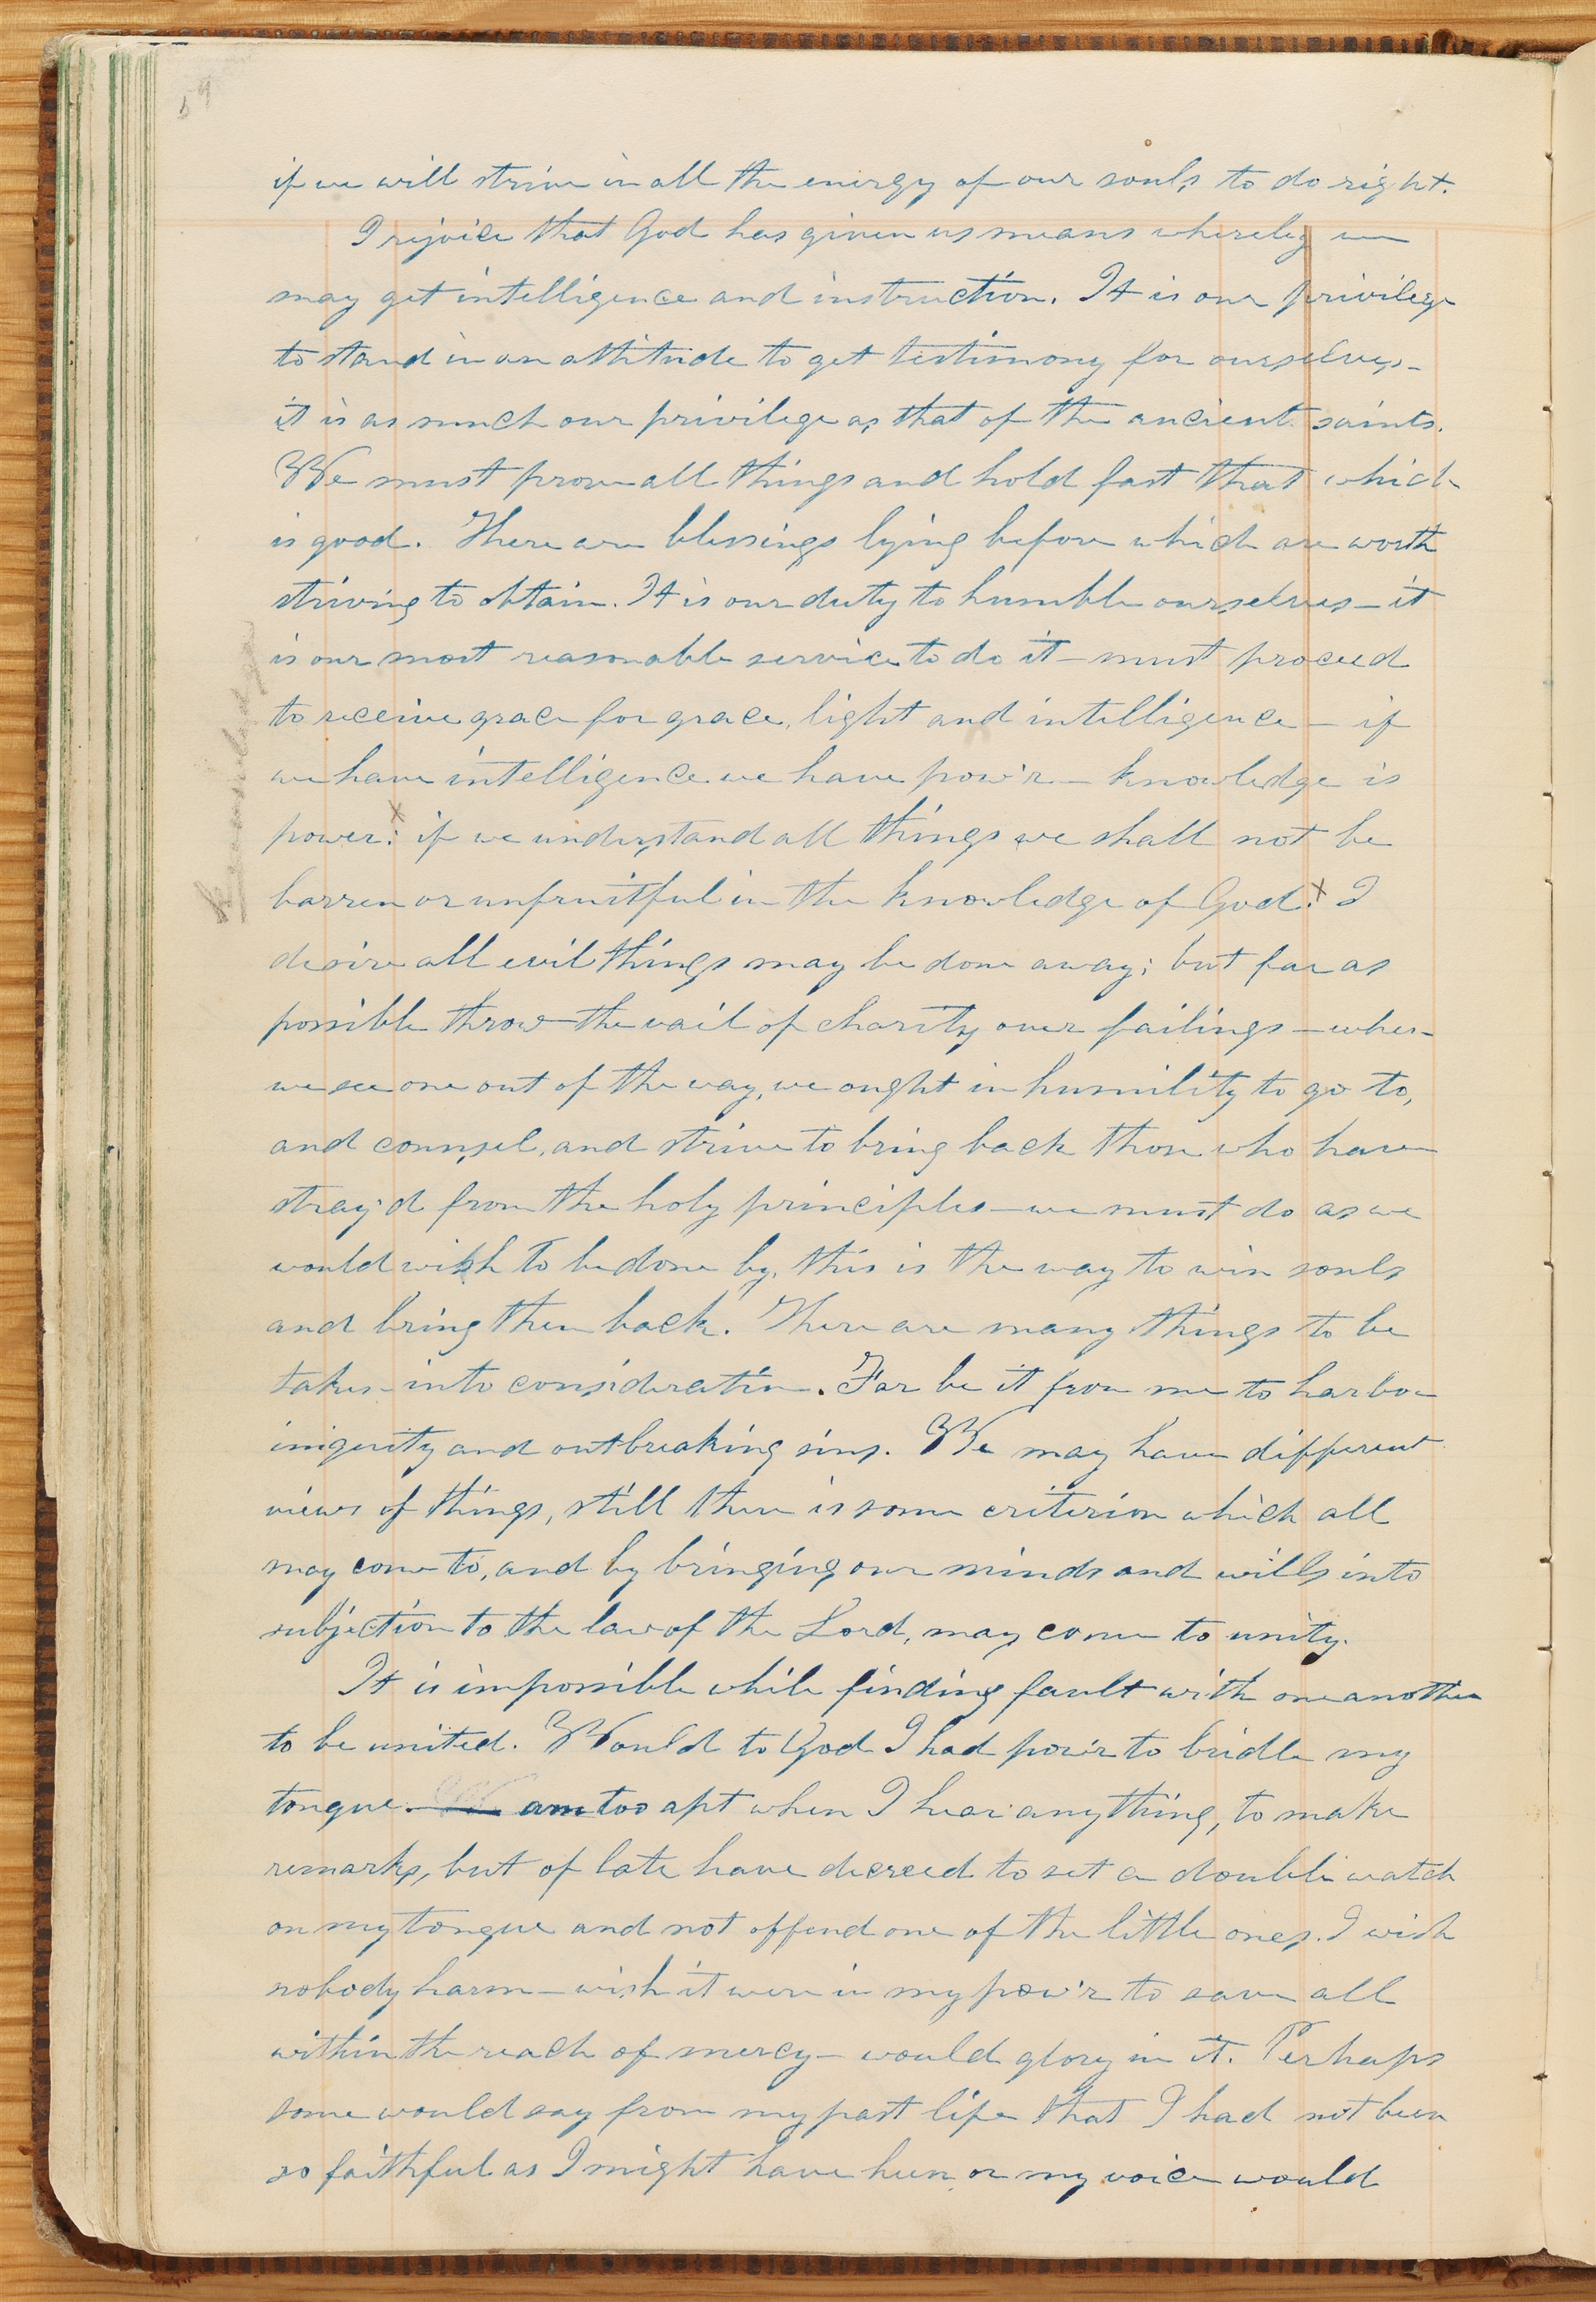 59
if we will strive in all the energy of our souls to do right.
I rejoice that God has given us means whereby we
may get intelligence and instruction. It is our privilege
to stand in an attitude to get testimony for ourselves—
it is as much our privilege as that of the ancient saints.
We must prove all things and hold fast that which
is good. There are blessings lying before which are worth
striving to obtain. It is our duty to humble ourselves— it
is our most reasonable service to do it— must proceed
to receive grace for grace, light and intelligence— if
we have intelligence we have pow'r— knowledge is
power: x if we understand all things we shall not be
barren or unfruitful in the knowledge of God. x I
desire all evil things may be done away; but far as
possible throw the vail of charity over failings— when
we see one out of the way, we ought in humility to go to,
and counsel, and strive to bring back those who have
stray'd from the holy principles— we must do as we
would wish to be done by, this is the way to win souls
and bring them back. There are many things to be
taken into consideration. Far be it from me to harbor
iniquity and outbreaking sins. We may have different
views of things, still there is some criterion which all
may come to, and by bringing our minds and wills into
subjection to the law of the Lord, may come to unity.
It is impossible while finding fault with one another
to be united. Would to God I had pow'r to bridle my
tongue. am too apt when I hear anything, to make
remarks, but of late have decreed to set a double watch
on my tongue and not offend one of the little ones. I wish
nobody harm— wish it were in my pow'r to save all
within the reach of mercy— would glory in it. Perhaps
some would say from my past life that I had not been
so faithful as I might have been, or my voice would